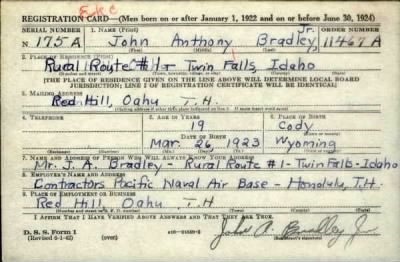 REGISTRATION CARD—(Men born on or after January 1, 1922 and on or before June 30, 1924)
SERIAL NUMBER 1. NAME (Print) ORDER NUMBER
N 175A John Anthony Bradley, Jr. 11467A
(First) (Middle) (Last)
2. PLACE OF RESIDENCE (Print)
Rural Route #1 - Twin Falls, Idaho
(Number and street) (Town, township, village, or city) (County) (State)
[THE PLACE OF RESIDENCE GIVEN ON THE LINE ABOVE WILL DETERMINE LOCAL BOARD
JURISDICTION; LINE 2 OF REGISTRATION CERTIFICATE WILL BE IDENTICAL]
3. MAILING ADDRESS
Red Hill, Oahu T.H.
4. TELEPHONE 5. AGE IN YEARS 6. PLACE OF BIRTH
19 Cody
DATE OF BIRTH
Mar. 26, 1923 Wyoming
(Mo.) (Day) (Yr.)
7. NAME AND ADDRESS OF PERSON WHO WILL ALWAYS KNOW YOUR ADDRESS
Mr. J. A. Bradley - Rural Route #1 - Twin Falls - Idaho
8. EMPLOYER'S NAME AND ADDRESS
Contractors Pacific Naval Air Base - Honolulu, T.H.
9. PLACE OF EMPLOYMENT OR BUSINESS
Red Hill, Oahu T.H.
I AFFIRM THAT I HAVE VERIFIED ABOVE ANSWERS AND THAT THEY ARE TRUE.
D. S. S. Form 1
(Revised 6-1-42) (over)
John A. Bradley Jr